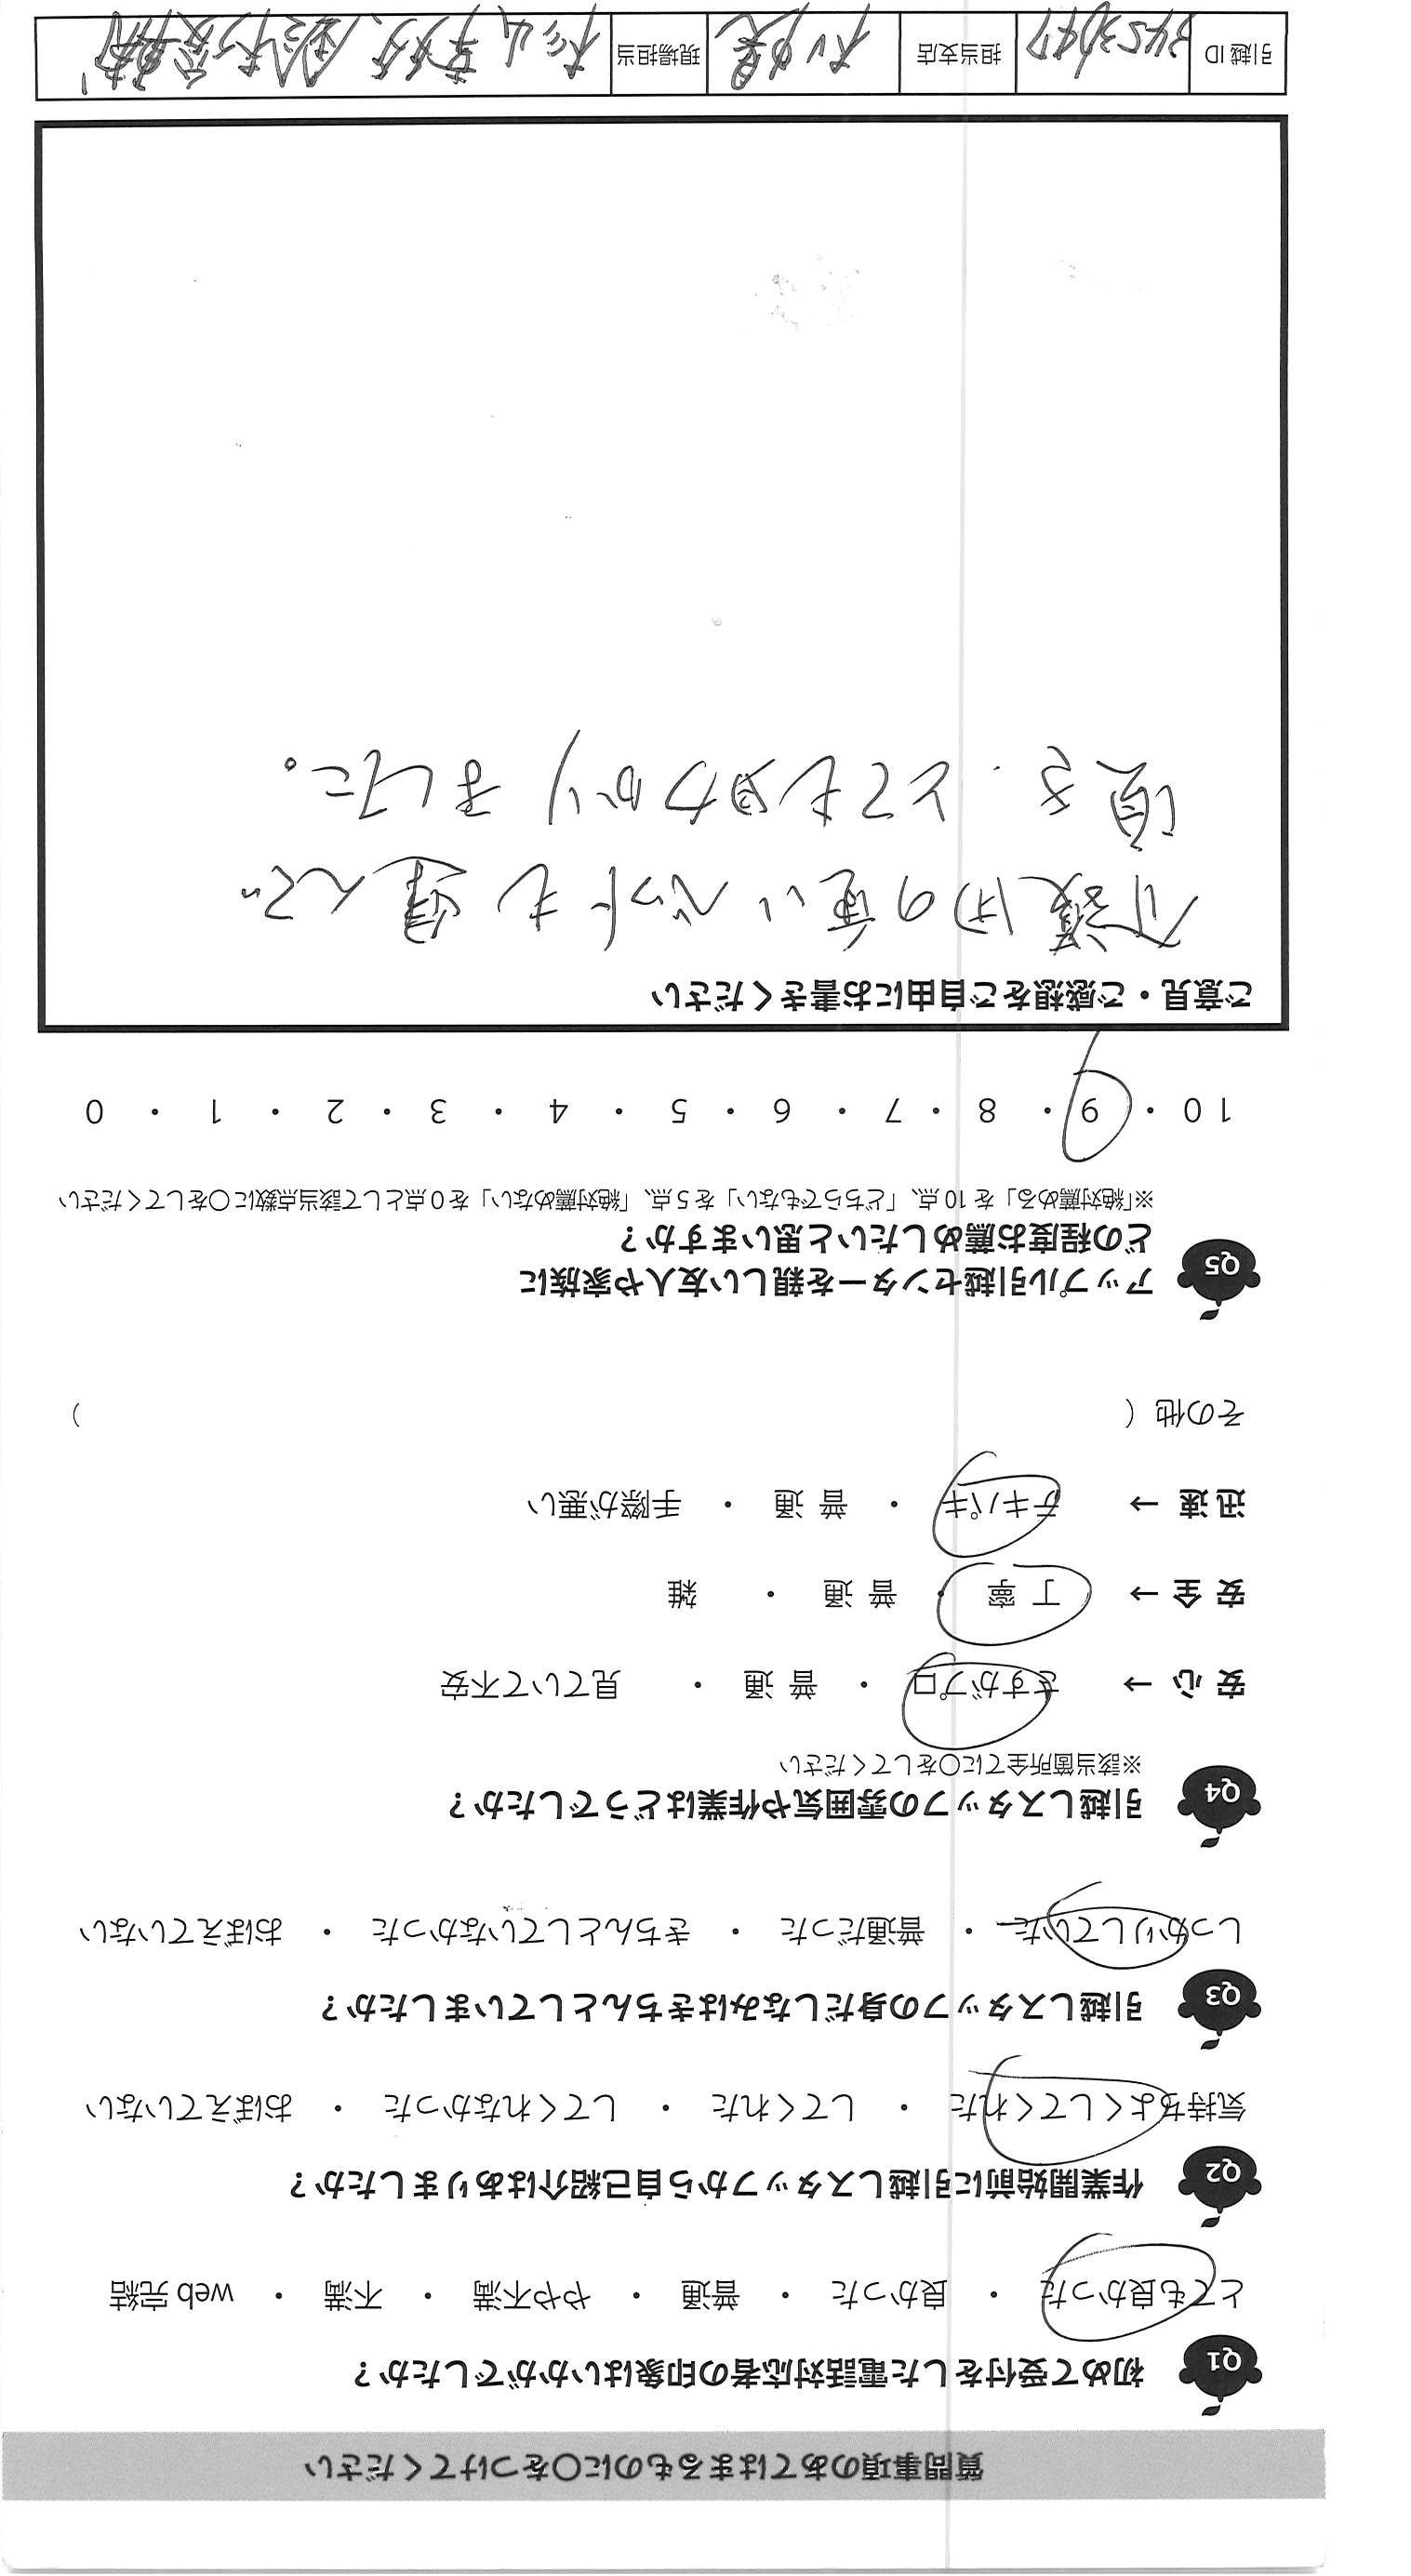 質問事項のあてはまるものに〇をつけてください
Q1 初めて受付をした電話対応者の印象はいかがでしたか？
とても良かった ・ 良かった ・ 普通 ・ やや不満 ・ 不満 ・ web 完結
Q2 作業開始前に引越しスタッフから自己紹介はありましたか？
気持ちよくしてくれた ・ してくれた ・ してくれなかった ・ おぼえていない
Q3 引越しスタッフの身だしなみはきちんとしていましたか？
しっかりしていた ・ 普通だった ・ きちんとしていなかった ・ おぼえていない
Q4 引越しスタッフの雰囲気や作業はどうでしたか？
※該当箇所全てに〇をしてください
安 心 → さすがプロ ・ 普 通 ・ 見ていて不安
安 全 → 丁 寧 ・ 普 通 ・ 雑
迅 速 → テキパキ ・ 普 通 ・ 手際が悪い
その他（ ）
Q5 アップル引越センターを親しい友人や家族に
どの程度お薦めしたいと思いますか？
※「絶対薦める」を 10 点、「どちらでもない」を 5 点、「絶対薦めない」を 0 点として該当点数に〇をしてください
10 ・ 9 ・ 8 ・ 7 ・ 6 ・ 5 ・ 4 ・ 3 ・ 2 ・ 1 ・ 0
ご意見・ご感想をご自由にお書きください
介護用の重いベットも運んで
頂き、とても助かりました。
引越 ID 担当支店 現場担当 杉山 鈴木